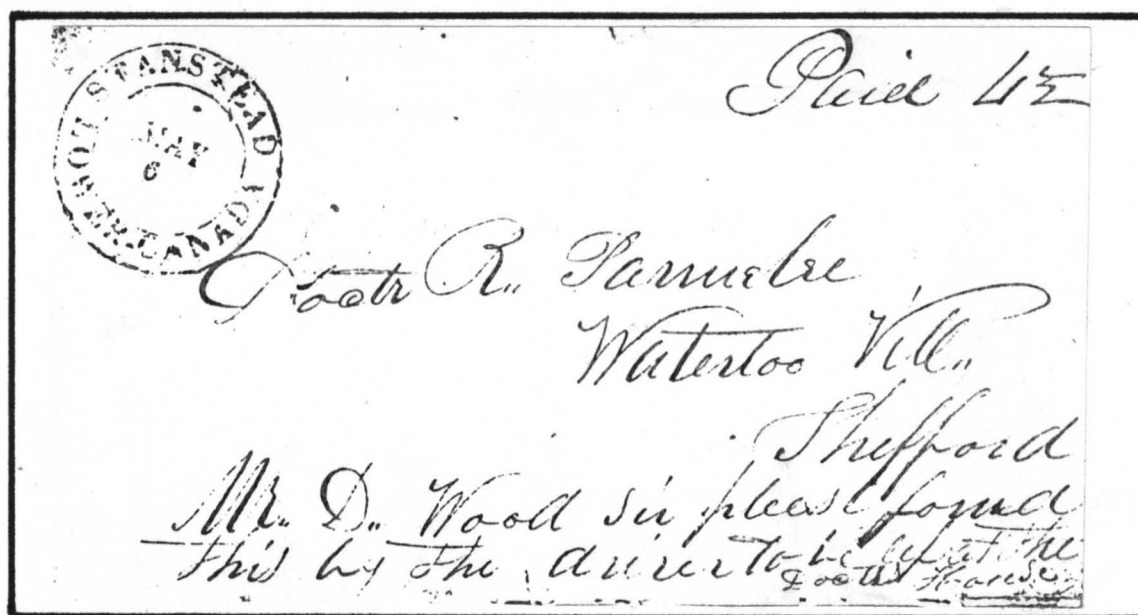 STANSTEAD LOWER CANADA
MAY
6
Paid 4½
Doctr R. Parmelee
Waterloo Vill.
Shefford
Mr. D. Wood sir please forwd
this by the driver to be left at the
Docts House